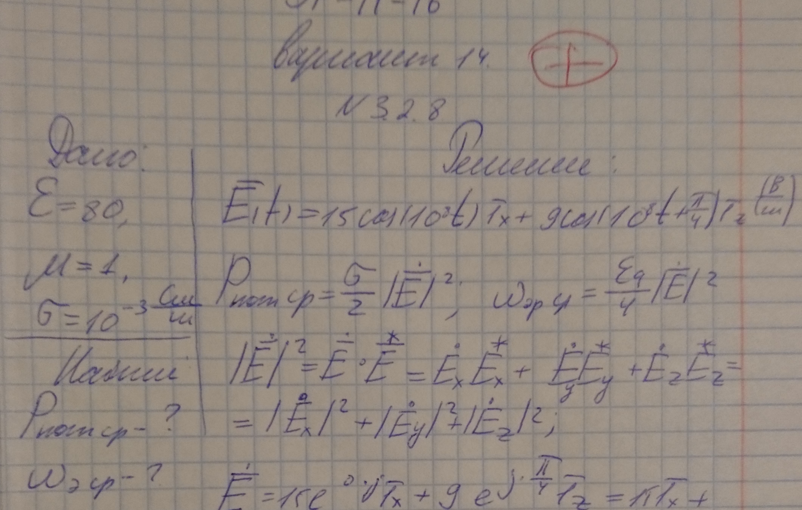 -11-16
Вариант 14. +
N 3.2.8
Дано:
ε = 80,
μ = 1,
σ = 10⁻³ См/м
Найти
Pпот ср - ?
wэ ср - ?
Решение:
E(t) = 15cos(10⁸t) 1x + 9cos(10⁸t + π/4) 1z (В/м)
Pпот ср = σ/2 |Ė|²; wэ ср = εa/4 |Ė|²
|Ė|² = Ė · E* = Ėx E*x + Ėy E*y + Ėz E*z =
= |Ėx|² + |Ėy|² + |Ėz|²;
Ė = 15e^(0·j) 1x + 9 e^(j·π/4) 1z = 15 1x +